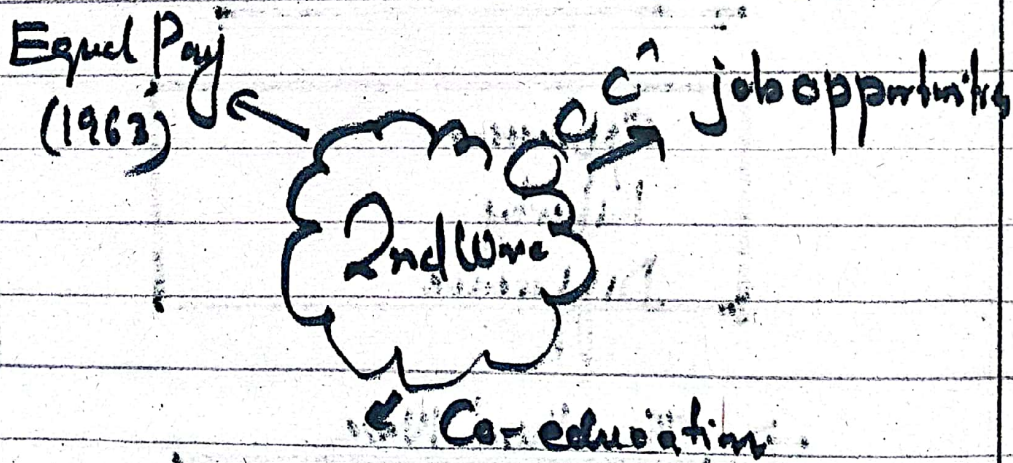 Equal Pay
(1963)
job opportunities
2nd Wave
Co-education